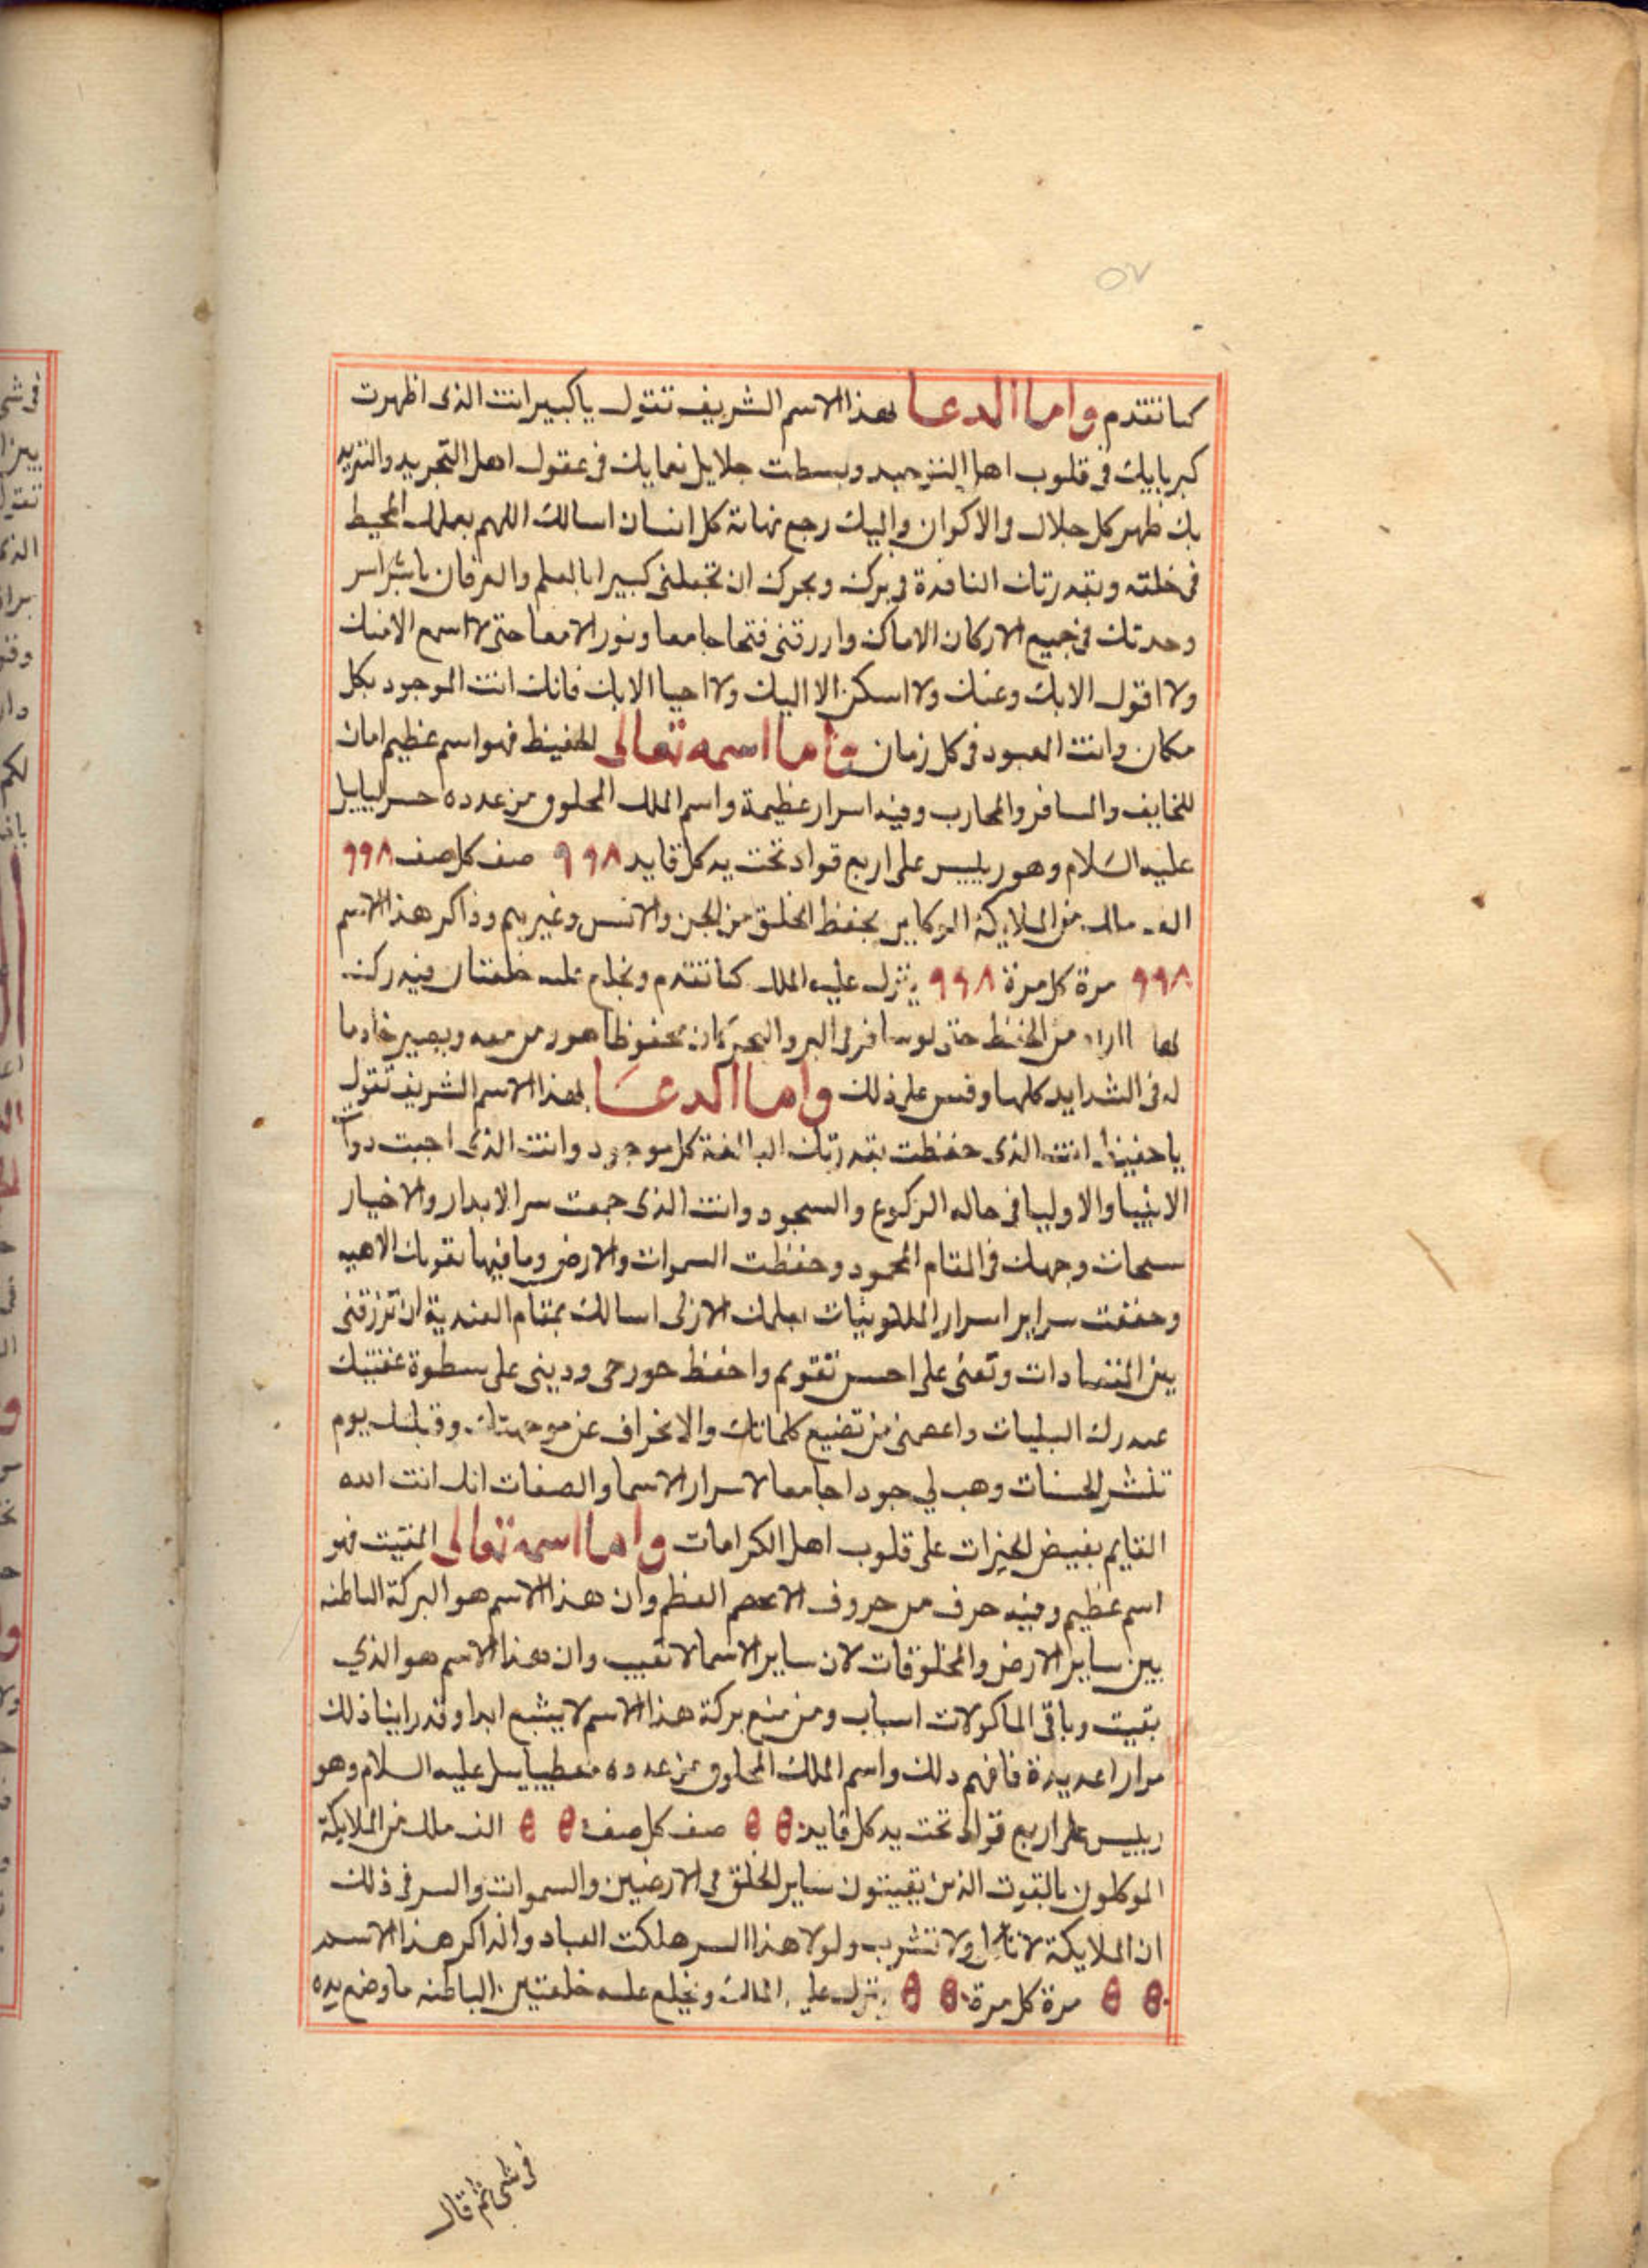 ٥٧
كما تقدم واما الدعا بهذا الاسم الشريف تقول يا كبير انت الذى اظهرت
كبريايك فى قلوب اهل التوحيد وبسطت جلايل نعمايك فى عقول اهل التجريد والتفريد
بك ظهر كل جلال فى الاكوان واليك رجع نهاية كل انسان اسالك اللهم بعلمك المحيط
فى خلقه وبقدرتك النافدة فى برك وبحرك ان تجعلنى كبيرا بالعلم والعرفان ناشر اسر
وحدتك فى جميع الاركان الاماكن وارزقنى فتحا جامعا ونور الامعا حتى لا اسمع الا منك
ولا اقول الا بك وعنك ولا اسكن الا اليك ولا احيا الا بك فانك انت الموجود بكل
مكان وانت المعبود فى كل زمان واما اسمه تعالى الحفيظ فهو اسم عظيم امان
للخايف والمسافر والمحارب وفيه اسرار عظيمة واسم الملك المخلوق من عدده
عليه السلام وهو رييس على اربع قواد تحت يد كل قايد ٩٩٨ صف كل صف ٩٩٨
الف ملك من الملايكة يحفظ الخلق من الجن والانس وغيرهم وذاكر هذا الاسم
٩٩٨ مرة كل مرة ٩٩٨ ينزل عليه الملك كما تقدم ويخلع عليه خلعتان فيدرك
بها ما اراد من الحفظ حتى لو سافر فى البر والبحر كان محفوظا هو ومن معه ويصير خادما
له فى الشدايد كلها وقس على ذلك واما الدعا بهذا الاسم الشريف تقول
يا حفيظ انت الذى حفظت بقدرتك البالغة كل موجود وانت الذى اجبت دعا
الانبيا والاوليا فى حاله الركوع والسجود وانت الذى جمعت سر الابدار والاخيار
سبحات وجهك فى المقام المحمود وحفظت السموات والارض وما فيها بقوتك الالهيه
وحفقت سراير اسرار الملكوتيات بعلمك الازلى اسالك بمقام العندية ان ترزقنى
بين المتضادات وتعنى على احسن تقويم واحفظ جورحى ودينى على سطوة
عند درك البليات واعصمنى من تضيع كلماتك والانحراف عن يوم
تنشر الحسنات وهب لي جودا جامعا لاسرار الاسما والصفات انك انت الله
القايم بفيض الخيرات على قلوب اهل الكرامات واما اسمه تعالى المقيت فهو
اسم عظيم وفيه حرف من حروف الاعظم وان هذا الاسم هو البركة الباطنه
بين ساير الارض والمخلوقات لان ساير الاسما لا تغيب وان هذا الاسم هو الذي
بقيت وباقى الماكولات اسباب ومن منع بركة هذا الاسم لا يشبع ابدا وقد راينا ذلك
مرارا عديدة فافهم ذلك واسم الملك المخلوق من عدده عليه السلام وهو
رييس على اربع قواد تحت يد كل قايد ٥٥٠ صف كل صف ٥٥٠ الف ملك من الملايكة
الموكلون بالقوت الذين يقيتون ساير الخلق فى الارضيين والسموات والسر فى ذلك
ان الملايكة لا تاكل ولا تشرب ولولا هذا السر هلكت العباد والذاكر هذا الاسم
٥٥٠ مرة كل مرة ٥٥٠ ينزل عليه الملك ويخلع عليه خلعتين الباطنه ما وضع يده
فى شى ثم قال